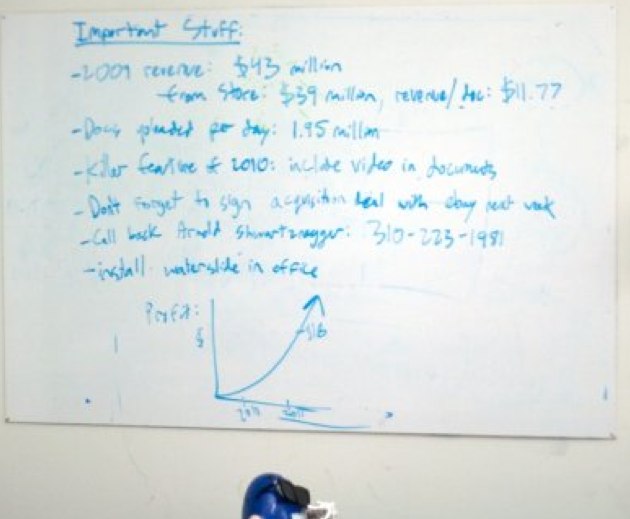 Important Stuff:
-2009 revenue: $43 million
-from Store: $39 million, revenue/doc: $11.77
-Docs uploaded per day: 1.95 million
-Killer feature of 2010: include video in documents
-Don't forget to sign acquisition deal with ebay next week
-Call back Arnold Shwartznagger: 310-223-1981
-install waterslide in office
Profit:
$